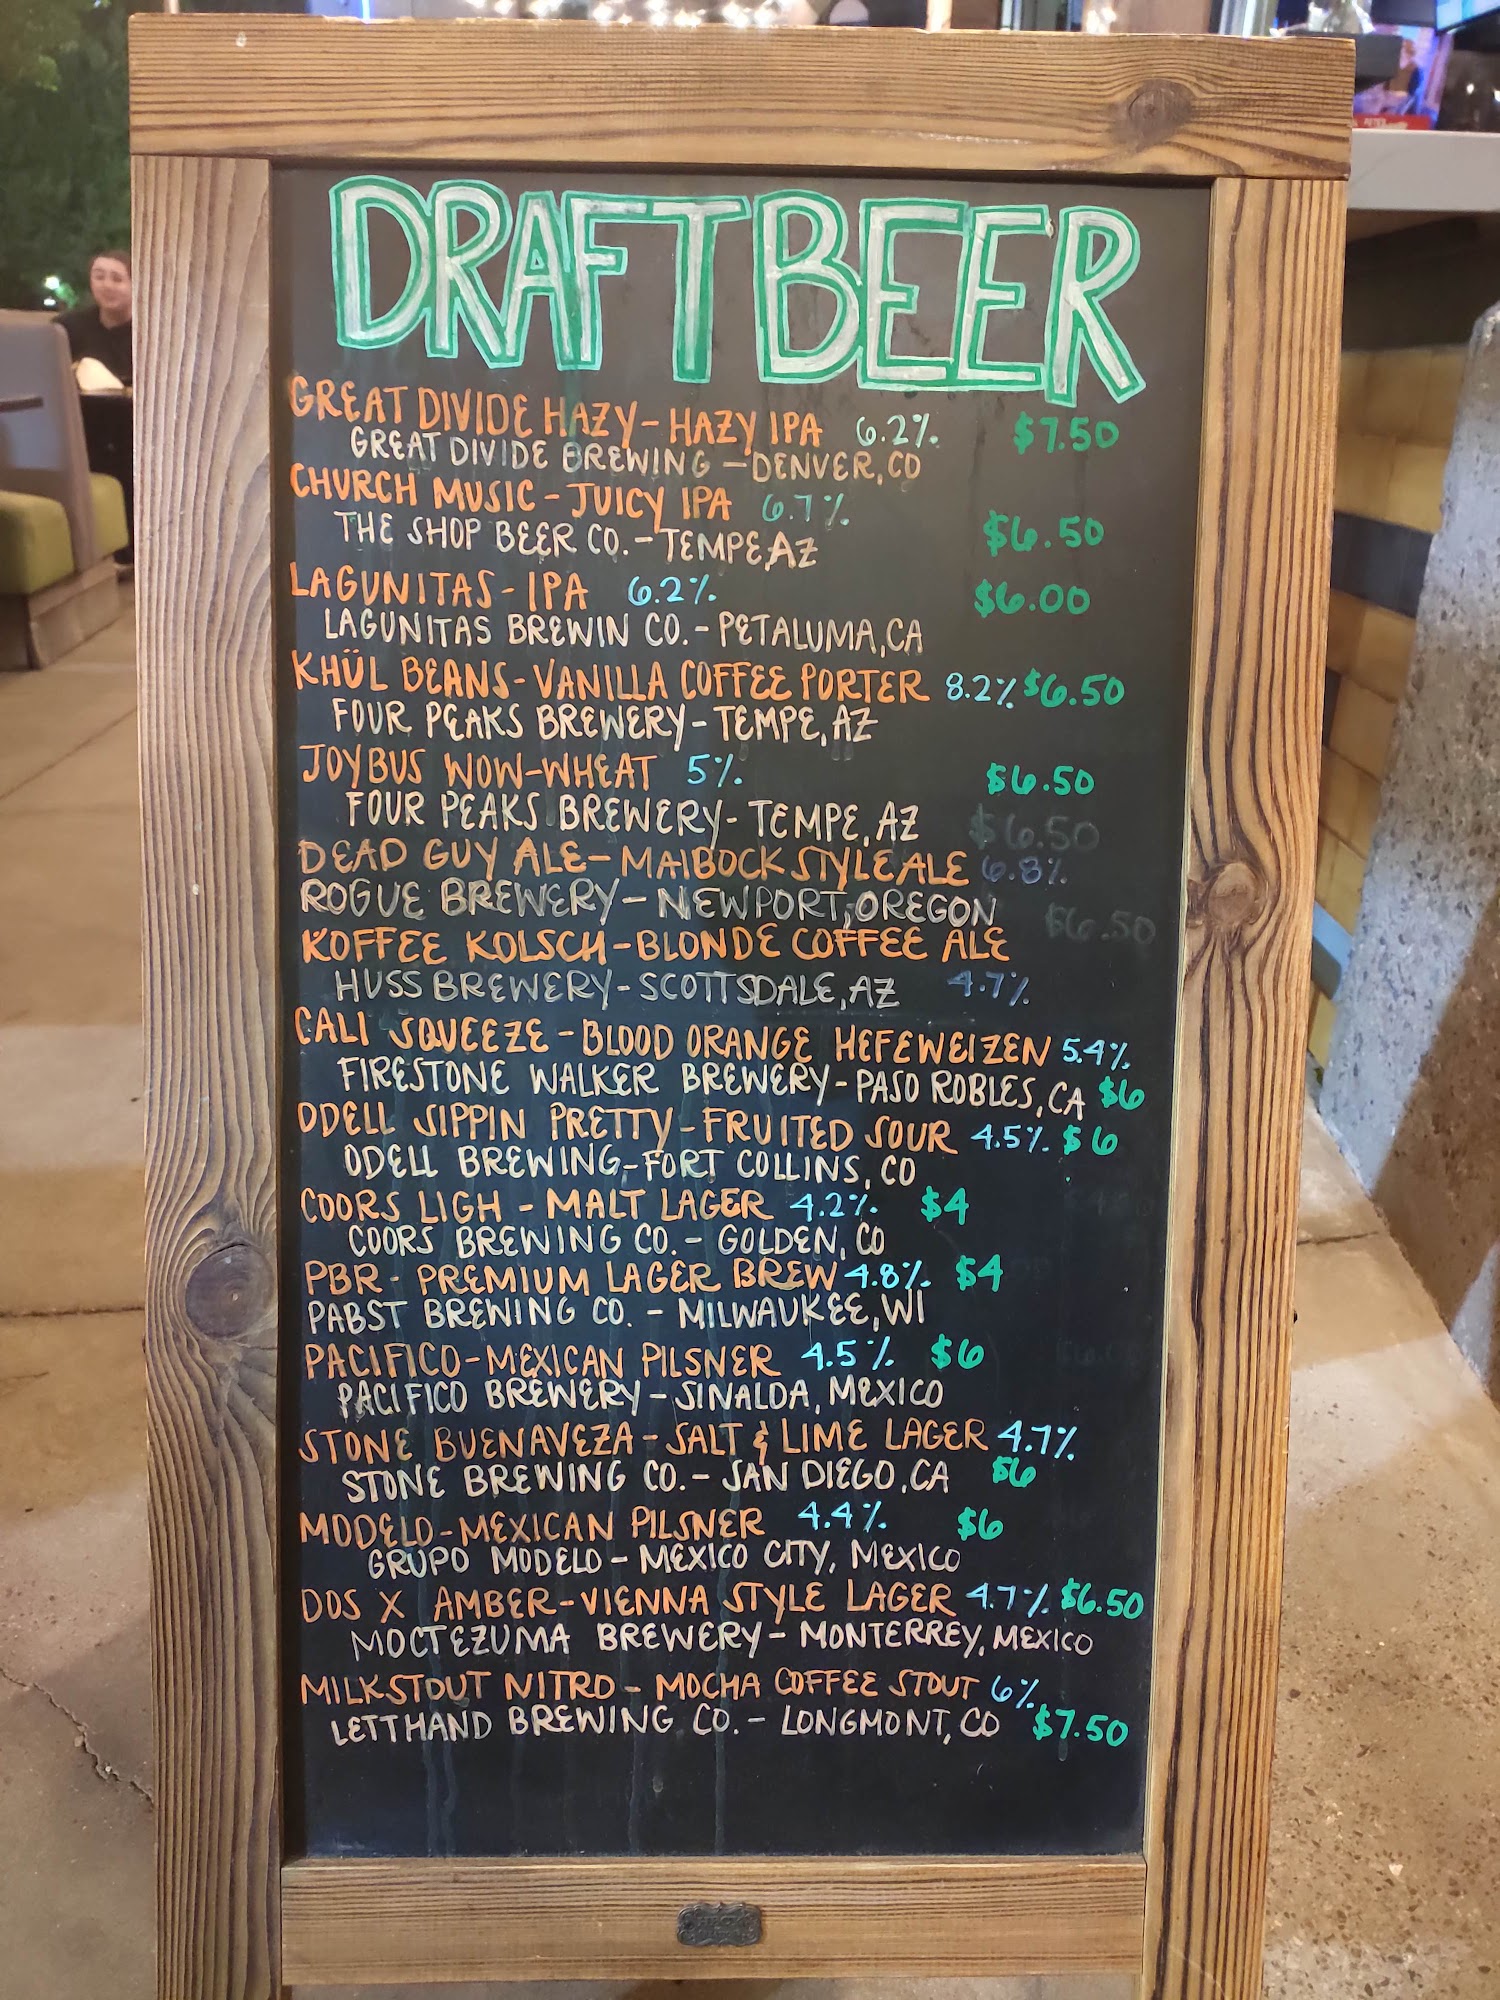 DRAFT BEER
GREAT DIVIDE HAZY - HAZY IPA 6.2% $7.50
GREAT DIVIDE BREWING - DENVER, CO
CHURCH MUSIC - JUICY IPA 6.7%
THE SHOP BEER CO. - TEMPE, AZ $6.50
LAGUNITAS - IPA 6.2% $6.00
LAGUNITAS BREWIN CO. - PETALUMA, CA
KHÜL BEANS - VANILLA COFFEE PORTER 8.2% $6.50
FOUR PEAKS BREWERY - TEMPE, AZ
JOYBUS WOW - WHEAT 5% $6.50
FOUR PEAKS BREWERY - TEMPE, AZ $6.50
DEAD GUY ALE - MAIBOCK STYLE ALE 6.8%
ROGUE BREWERY - NEWPORT, OREGON $6.50
KOFFEE KOLSCH - BLONDE COFFEE ALE
HUSS BREWERY - SCOTTSDALE, AZ 4.7%
CALI SQUEEZE - BLOOD ORANGE HEFEWEIZEN 5.4%
FIRESTONE WALKER BREWERY - PASO ROBLES, CA $6
ODELL SIPPIN PRETTY - FRUITED SOUR 4.5% $6
ODELL BREWING - FORT COLLINS, CO
COORS LIGH - MALT LAGER 4.2% $4
COORS BREWING CO. - GOLDEN, CO
PBR - PREMIUM LAGER BREW 4.8% $4
PABST BREWING CO. - MILWAUKEE, WI
PACIFICO - MEXICAN PILSNER 4.5% $6
PACIFICO BREWERY - SINALOA, MEXICO
STONE BUENAVEZA - SALT & LIME LAGER 4.7%
STONE BREWING CO. - SAN DIEGO, CA $6
MODELO - MEXICAN PILSNER 4.4% $6
GRUPO MODELO - MEXICO CITY, MEXICO
DOS X AMBER - VIENNA STYLE LAGER 4.7% $6.50
MOCTEZUMA BREWERY - MONTERREY, MEXICO
MILKSTOUT NITRO - MOCHA COFFEE STOUT 6%
LETTHAND BREWING CO. - LONGMONT, CO $7.50